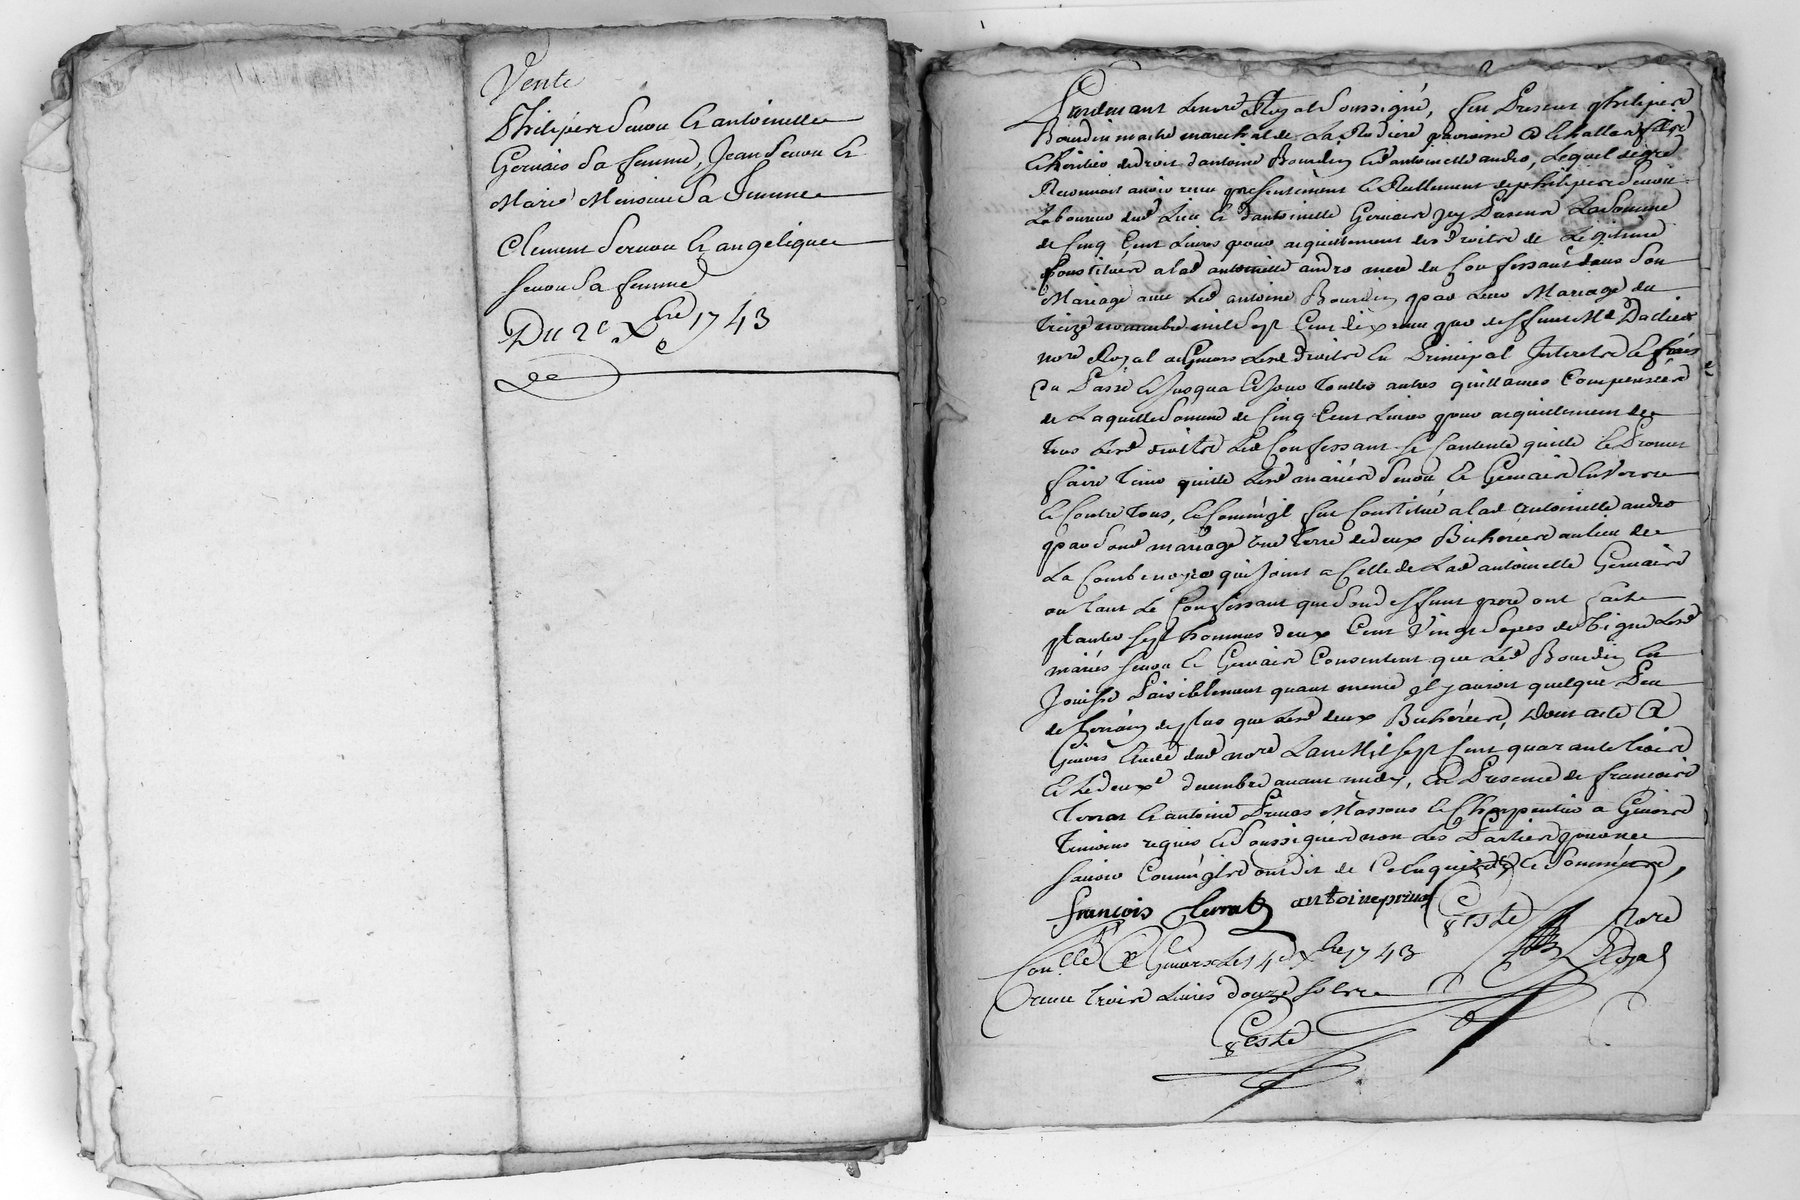 Vente
Philipere Senou Et antoinette
Gervais Sa femme, Jean Senou Et
Marie Sa femme
Clement Servou Et angelique
Senou Sa femme
Du 2e Xbre 1743
Pardevant Lenore Royal Soussigné, fut Present philipere
Bourdin maitre marechal de La paroisse
heritier de droit d'antoine Bourdin Et d'antoinette andro, Lequel de gré
Reconnoit avoir receu presentement Et Rellement de philipere Senou
Laboureur dud Lieu Et d'antoinette Gervaise Jcy Presens La Somme
de Cinq Cent Livres pour acquittement des droits de Legitime
Constituée a lad antoinette andro mere du Confessant dans Son
Mariage avec Led antoine Bourdin par Leur Mariage du
treize novembre mil Sept Cent dix receu par deffunt Me
nore Royal a Givors Lesd droits En Principal Interets Et frais
Du Passé Et Jusqua Ce Jour toutes autres quittances Compensées
de Laquelle Somme de Cinq Cent Livres pour acquittement de
tous Lesd droits Led Confessant Se Contente quitte Et Promet
faire tenir quitte Lesd mariés Senou Et Gervaise Envers
Et Contre tous, Et Comme Jl fut Constitué a lad antoinette andro
par Sond mariage une terre de deux Bicherées au lieu de
La qui Joint a Celle de Lad antoinette Gervaise
ou tant Le Confessant que Sond deffunt pere ont fait
planter Sept hommes deux Cent Vingt Seps de Vigne Lesd
mariés Senou Et Gervaise Consentent que Led Bourdin En
Jouisse Paisiblement quant meme Jl y auroit quelque Peu
de terrain de plus que Lesd deux Bicherées, Dont acte a
Givors Etude dud nore Lan Mil Sept Cent quarante trois
Et Le deuxe decembre avant midy, En Presence de francois
terrat Et antoine Privas Massons Et Charpentier a Givors
temoins requis Et Soussignés non Les Parties pour ne
Savoir Comme Jls ont dit de Ce Enquis Et Sommés,
françois terrat antoine privas Geste Nore
Royal
Con.llé A Givors Le 14e Xbre 1743
Receu trois Livres douze Sols
Geste